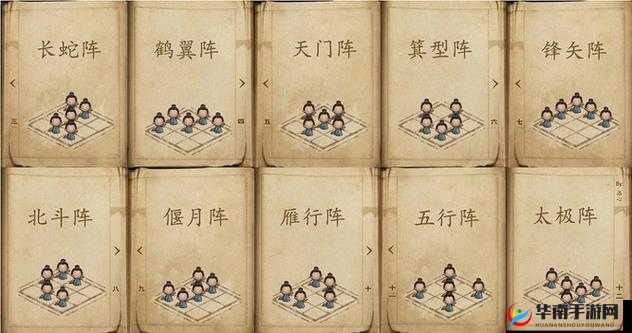 长蛇阵
三
鹤翼阵
四
天门阵
五
箕型阵
六
锋矢阵
七
北斗阵
八
偃月阵
九
雁行阵
十
五行阵
十一
太极阵
十二
华南手游网
HUANANSHOUYOUWANG